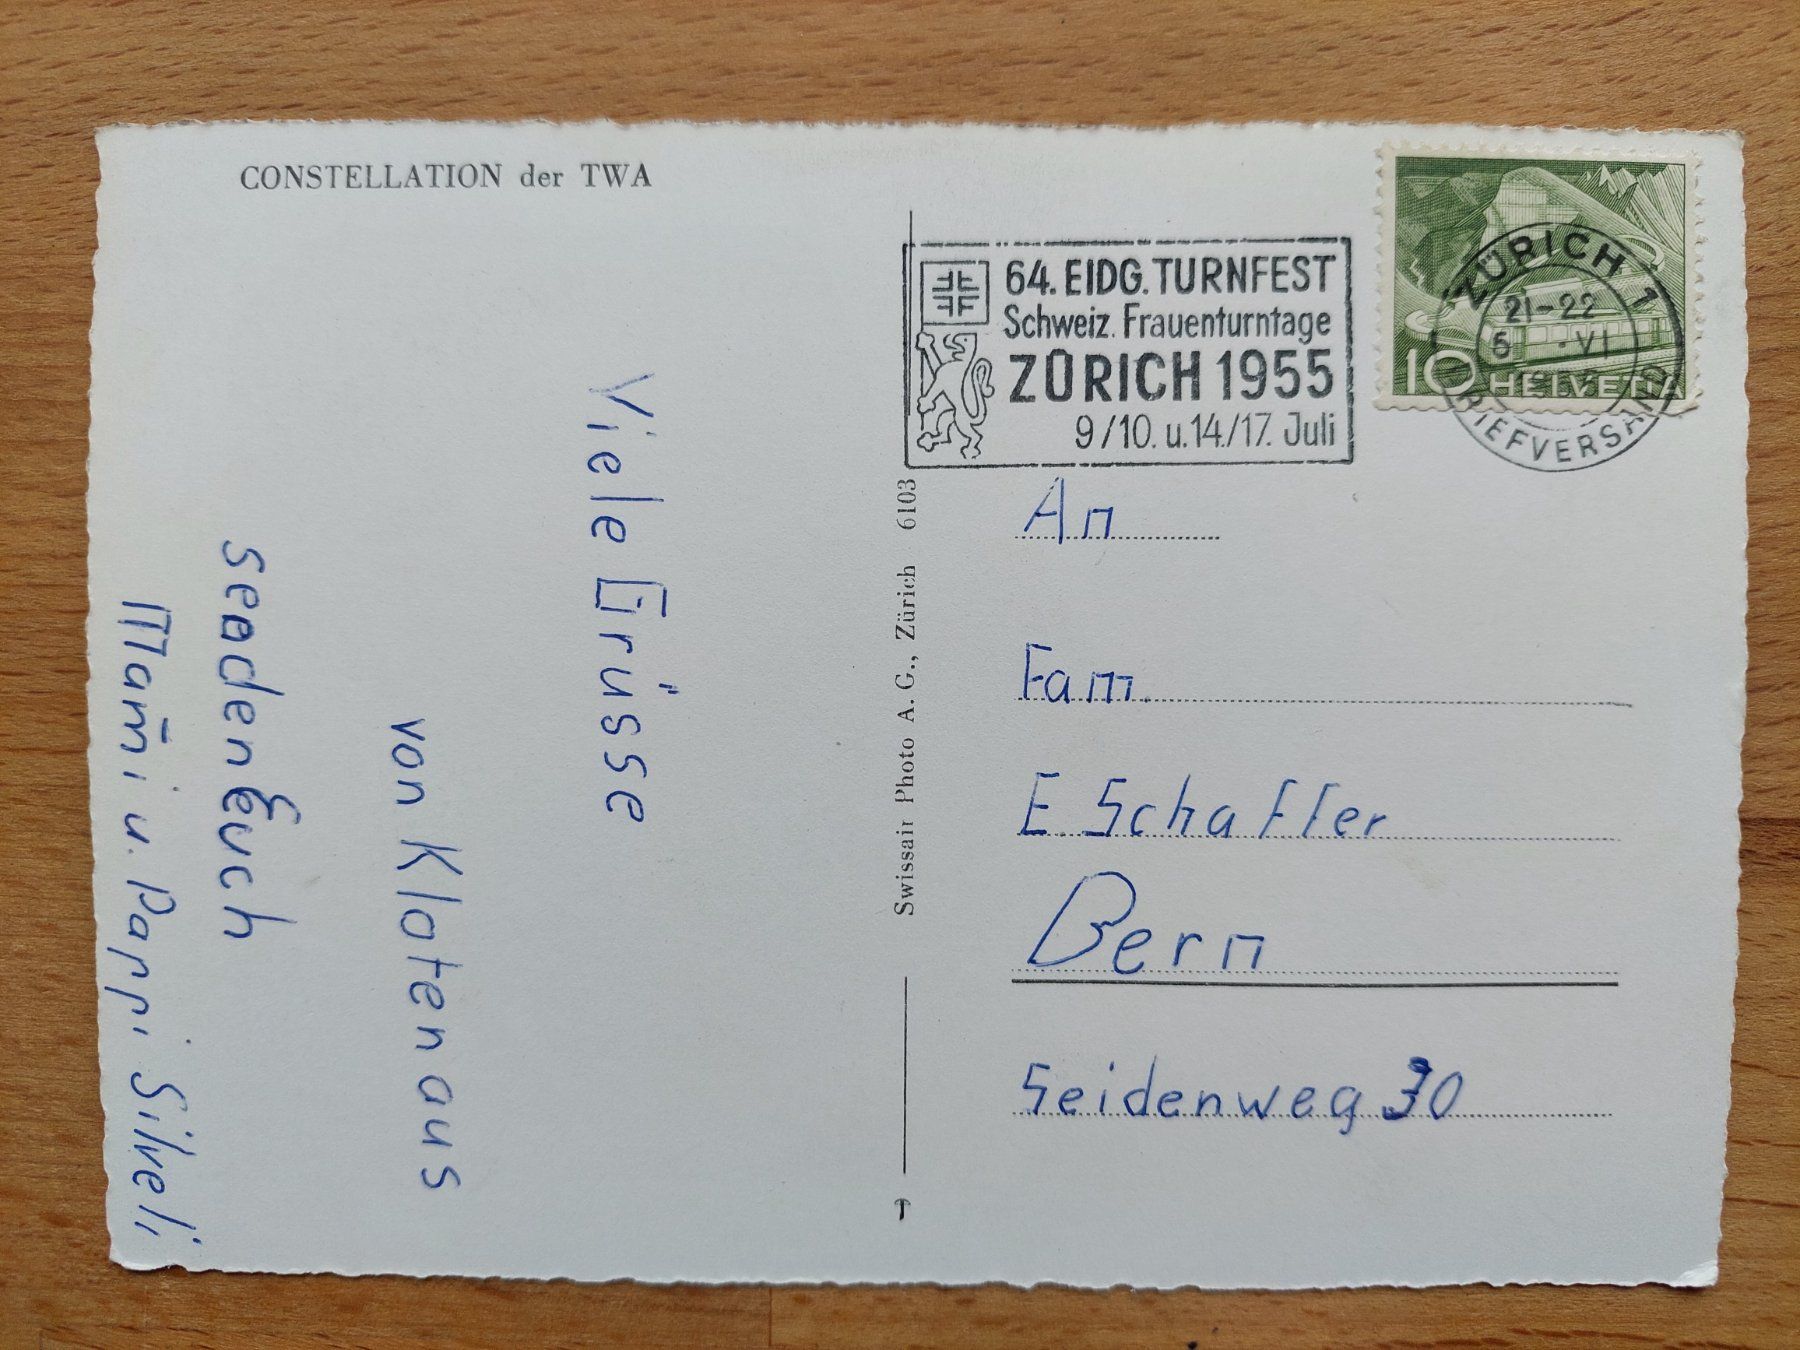 CONSTELLATION der TWA
Viele Grüsse
von Kloten aus
seaden Euch
Mami u. Pappi Silveli
Swissair Photo A. G., Zürich 6103
64. EIDG. TURNFEST
Schweiz. Frauenturntage
ZÜRICH 1955
9/10. u. 14./17. Juli
ZÜRICH 1
21-22
5 · VI
BRIEFVERSAND
10 HELVETIA
An
Fam.
E. Schaffer
Bern
Seidenweg 30